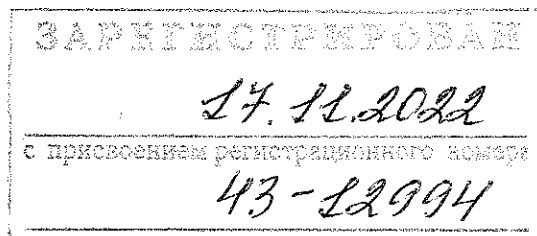 ЗАРЕГИСТРИРОВАН
17.11.2022
с присвоением регистрационного номера
43-12994